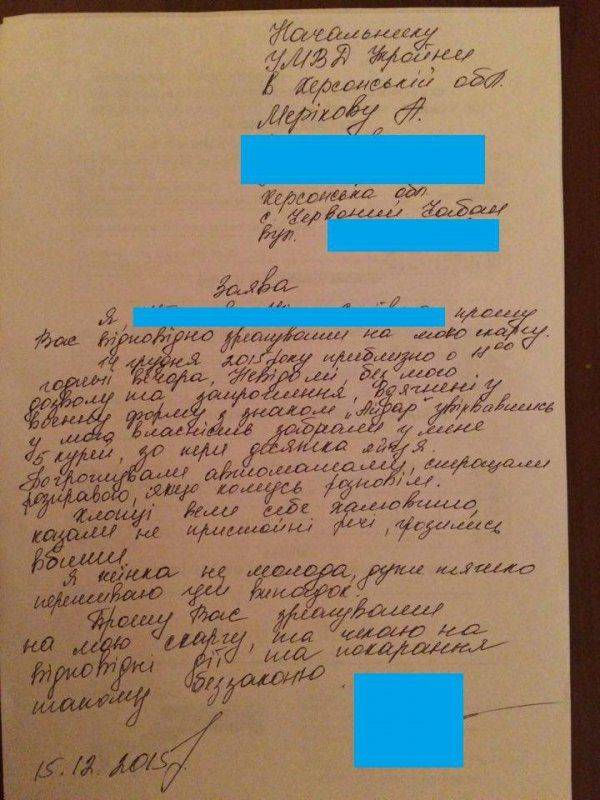 Начальнику
УМВД України
в Херсонській обл.
Мерікову А.
Херсонська обл
с. Червоний Чабан
вул.
Заява
Я, прошу
Вас відповідно зреагувати на мою скаргу.
14 грудня 2015 року приблизно о 11⁰⁰
годині вечора, Невідомі, без мого
дозволу та запрошення, Вдягнені у
военну форму з знаком „Айдар" увірвавшись
у мою власність забрали у мене
5 курей, за три десятка яйця.
Погрожували автоматами, стращали
розправою, якщо комусь розповім.
Хлопці вели себе хамовито,
казали не пристойні речі, грозились
вбити.
Я жінка не молода, дуже тяжко
переживаю цей випадок.
Прошу Вас зреагувати
на мою скаргу, та чекаю на
відповідні дії та покарання
такому беззаконю.
15.12.2015